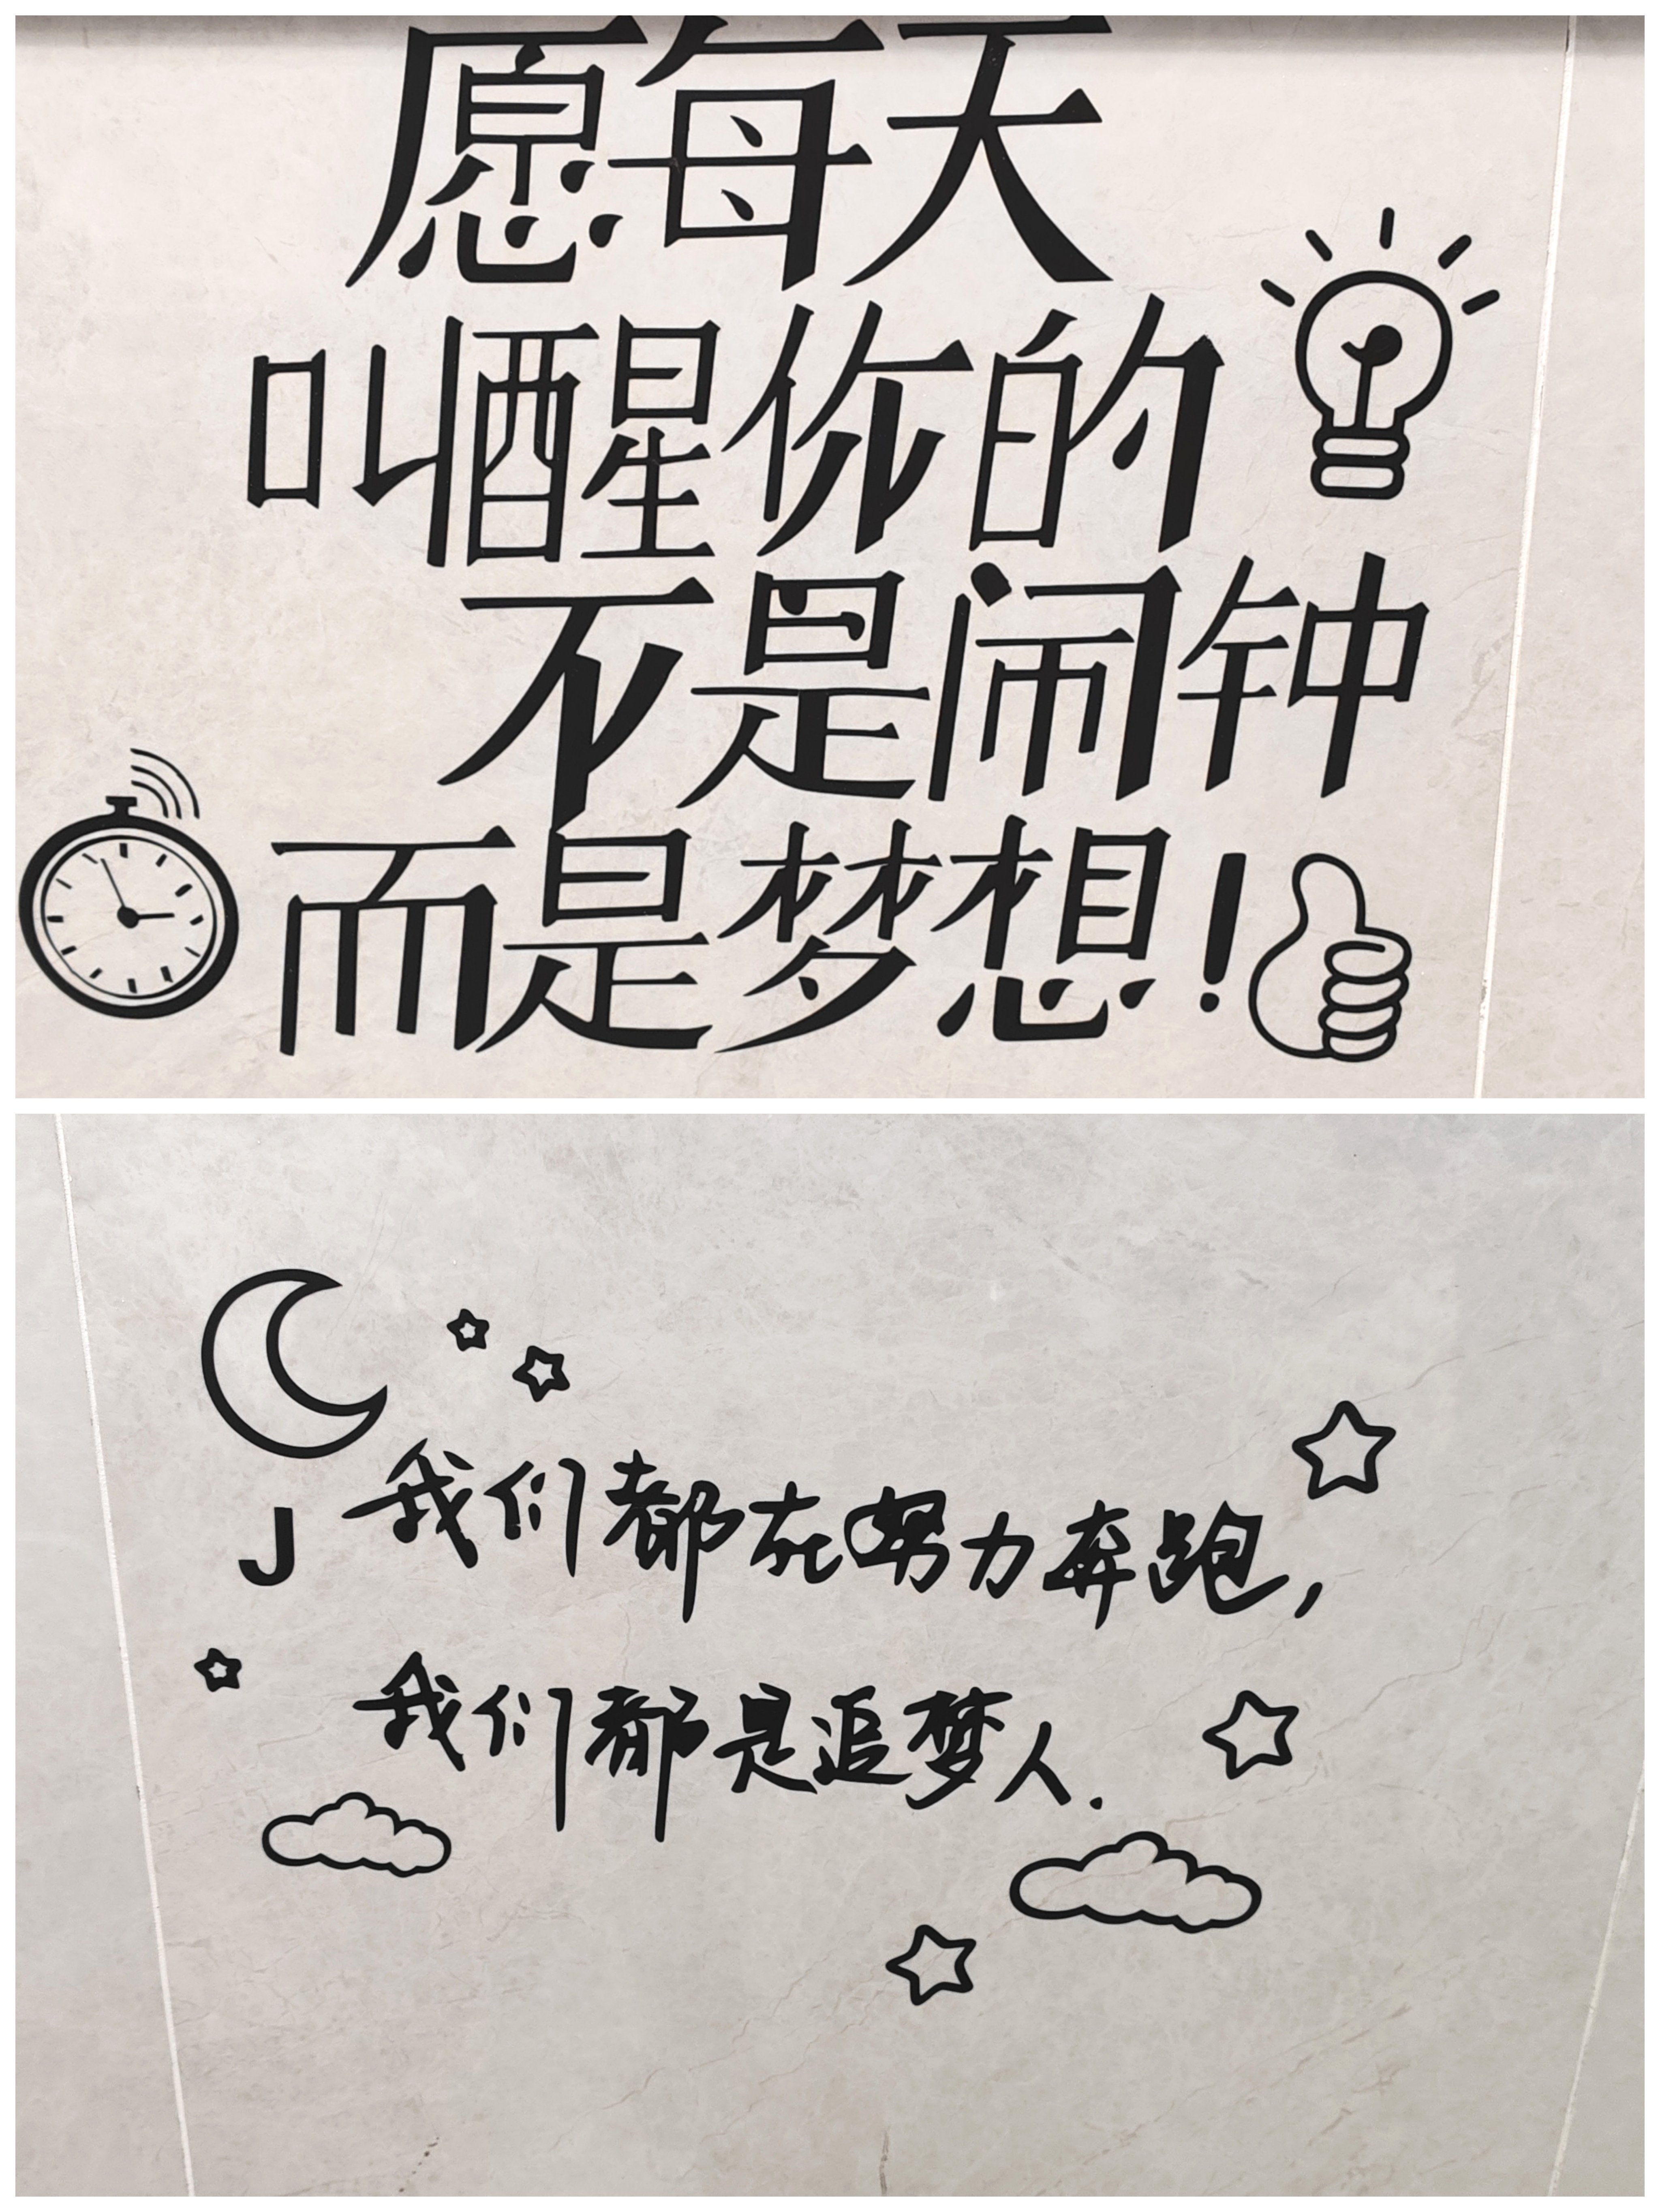 愿每天
叫醒你的
不是闹钟
而是梦想！
J
我们都在努力奔跑，
我们都是追梦人.